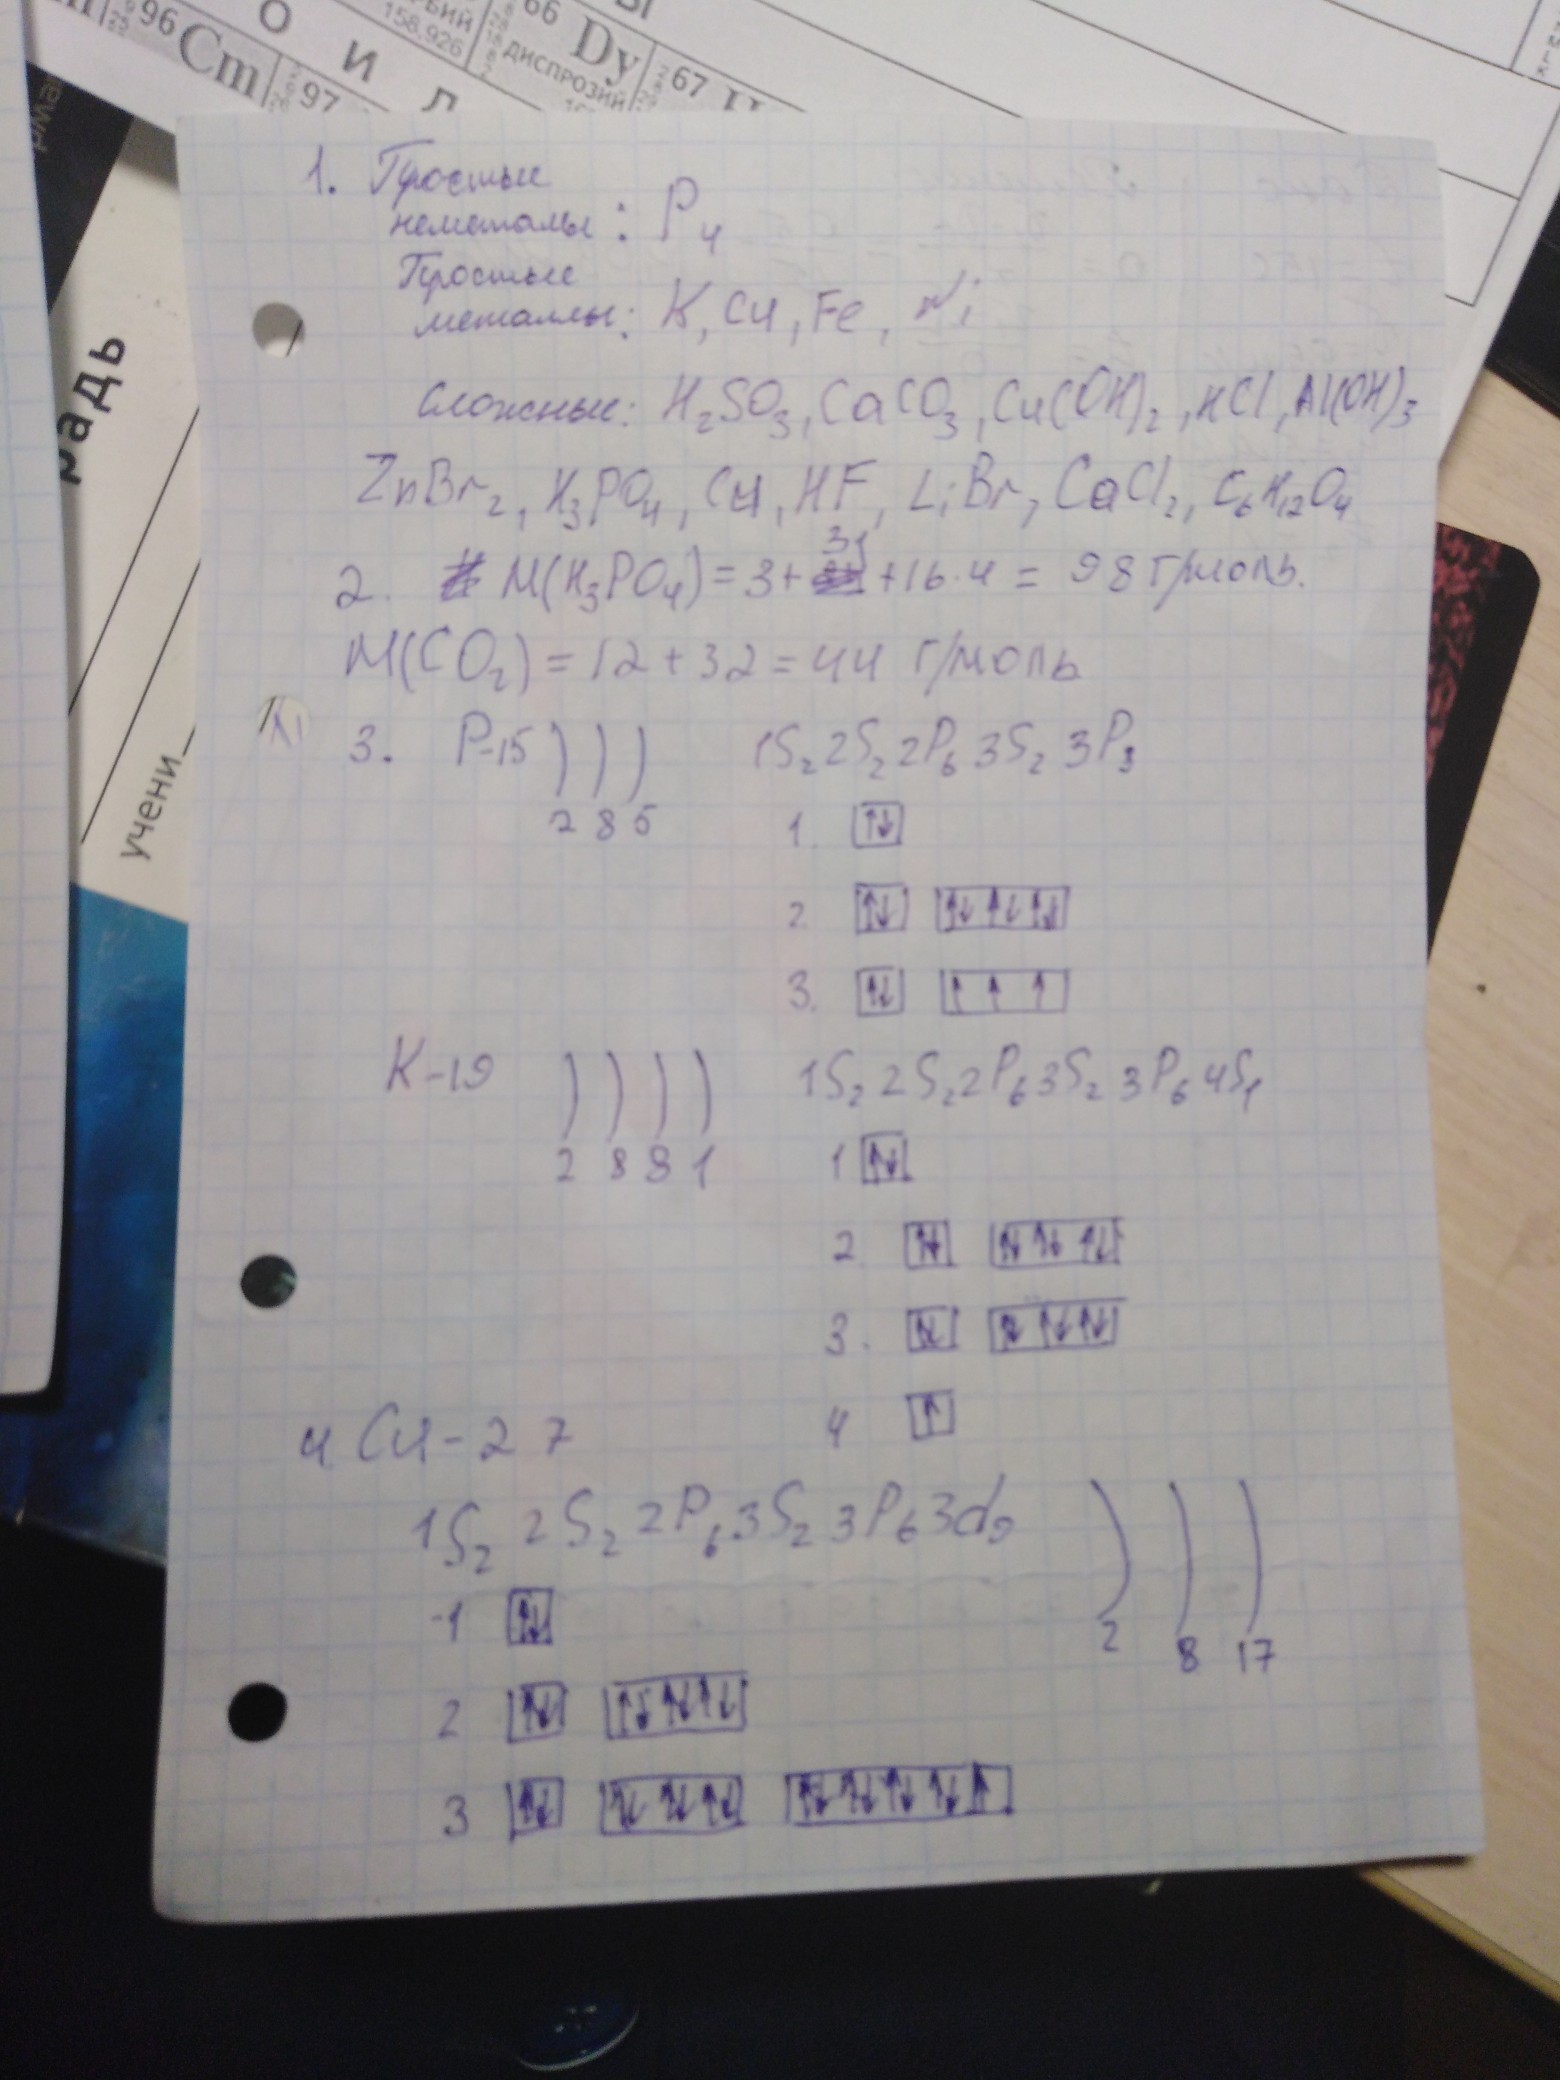 96
Cm
97
О И Л
158,926
66
Dy
ДИСПРОЗИЙ
67
Ы
радь
учени
1. Простые
неметалы : P4
Простые
металлы: K, Cu, Fe, Ni
Сложные: H2SO3, CaCO3, Cu(OH)2, HCl, Al(OH)3
ZnBr2, H3PO4, Cu, HF, LiBr, CaCl2, C6H12O4
2. M(H3PO4) = 3+ 31 +16·4 = 98 г/моль.
M(CO2) = 12 + 32 = 44 г/моль
3. P-15 ) ) ) 1S2 2S2 2P6 3S2 3P3
2 8 5
1. ↑↓
2. ↑↓ ↑↓ ↑↓ ↑↓
3. ↑↓ ↑ ↑ ↑
K-19 ) ) ) ) 1S2 2S2 2P6 3S2 3P6 4S1
2 8 8 1
1 ↑↓
2 ↑↓ ↑↓ ↑↓ ↑↓
3. ↑↓ ↑↓ ↑↓ ↑↓
4 ↑
4 Cu-27
1S2 2S2 2P6 3S2 3P6 3d9 ) ) )
2 8 17
1 ↑↓
2 ↑↓ ↑↓ ↑↓ ↑↓
3 ↑↓ ↑↓ ↑↓ ↑↓ ↑↓ ↑↓ ↑↓ ↑↓ ↑